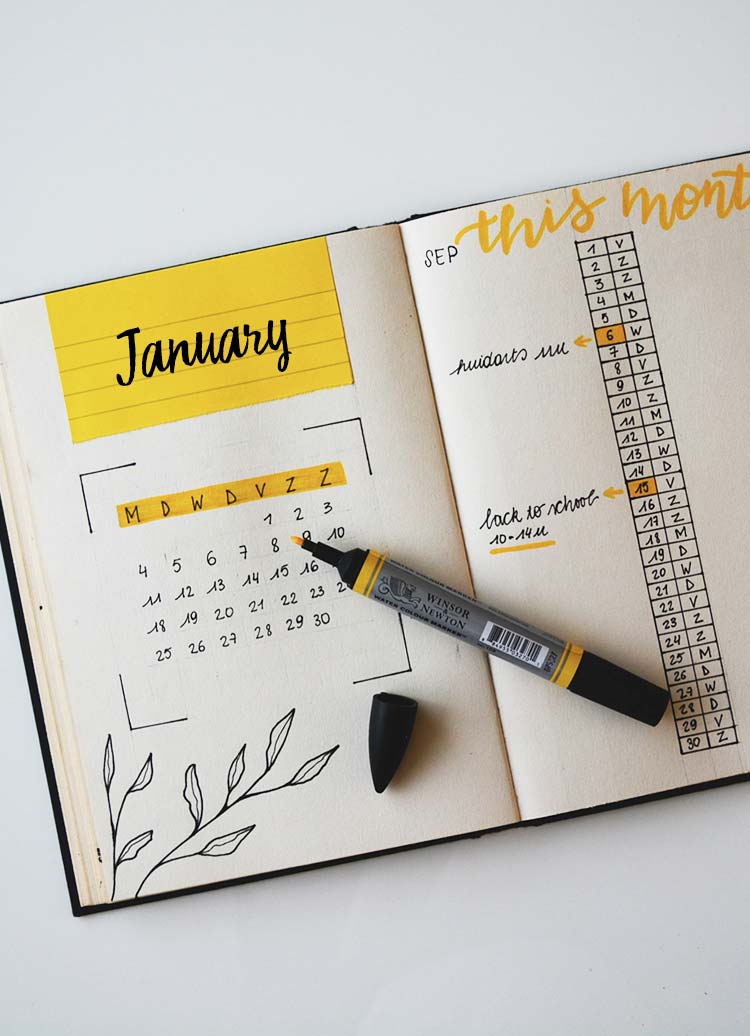 January
M D W D V Z Z
1 2 3
4 5 6 7 8 9 10
11 12 13 14 15 16
18 19 20 21 22 23
25 26 27 28 29 30
this mont
SEP
1 V
2 Z
3 Z
4 M
5 D
6 W
7 D
8 V
9 Z
10 Z
11 M
12 D
13 W
14 D
15 V
16 Z
17 Z
18 M
19 D
20 W
21 D
22 V
23 Z
24 Z
25 M
26 D
27 W
28 D
29 V
30 Z
huidarts
back to school
10-14u
WINSOR
& NEWTON
WATER COLOUR MARKER